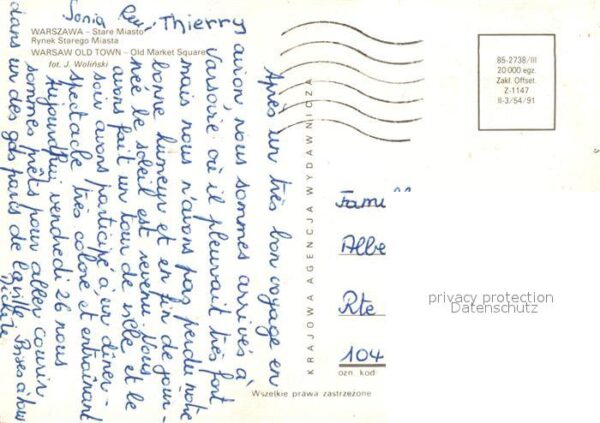 WARSZAWA – Stare Miasto
Rynek Starego Miasta
WARSAW OLD TOWN – Old Market Square
fot. J. Woliński
Après un très bon voyage en
avion, nous sommes arrivés à
Varsovie où il pleuvait très fort
mais nous n'avons pas perdu notre
bonne humeur et en fin de jour-
née le soleil est revenu. Nous
avons fait un tour de ville et le
soir avons participé à un dîner-
spectacle très coloré et entraînant
Aujourd'hui vendredi 26 nous
sommes prêts pour aller courir
dans un des gds parcs de la ville Bises à tous
Sonia
Thierry
KRAJOWA AGENCJA WYDAWNICZA
85-2738/III
20 000 egz.
Zakł. Offset.
Z-1147
II-3/54/91
Fami
Albe
Rte
104
ozn. kod
Wszelkie prawa zastrzeżone
privacy protection
Datenschutz